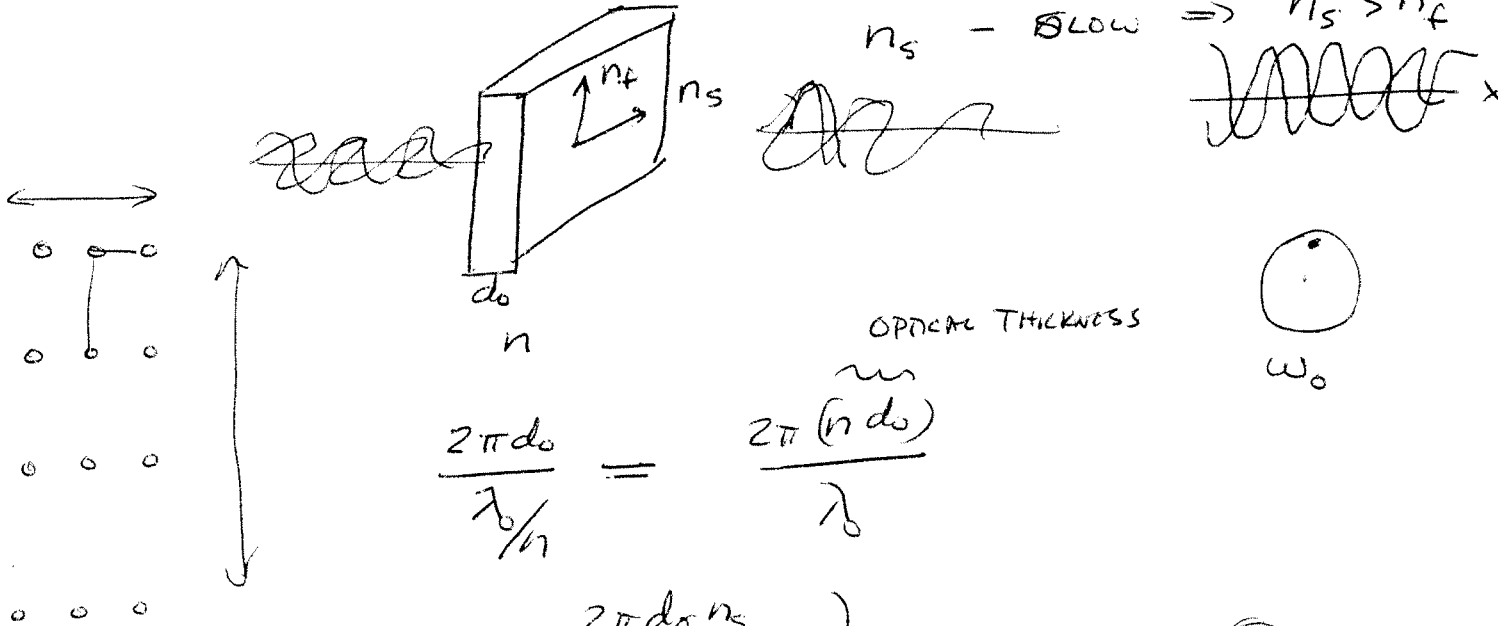 n_s - SLOW ⇒ n_s > n_f
n_f
n_s
x
d_o
n
OPTICAL THICKNESS
ω_o
2πd_o / (λ_o/n) = 2π(n d_o) / λ_o
2πd_o n_s )